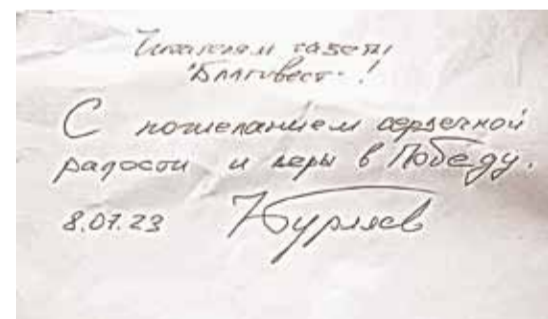 Читателям газеты
"Благовест"!
С пожеланием сердечной
радости и веры в Победу.
8.07.23 НБурляев